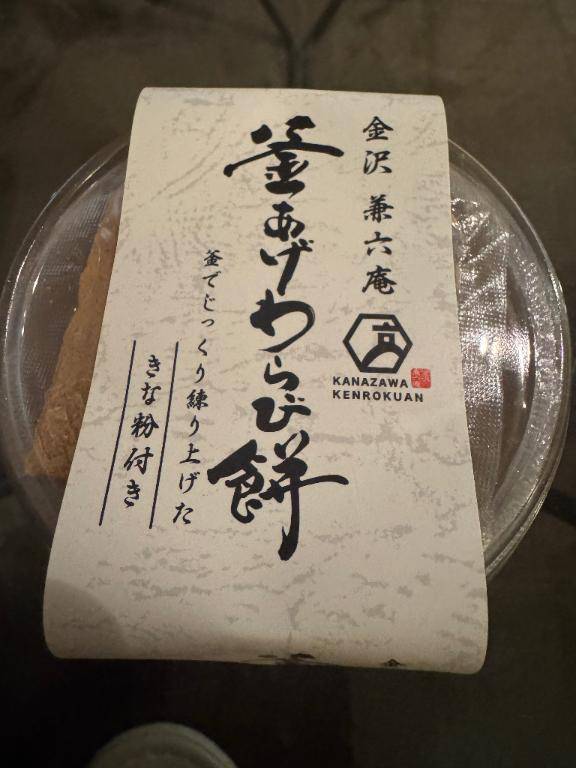 金沢 兼六庵
KANAZAWA
KENROKUAN
釜あげわらび餅
釜でじっくり練り上げた
きな粉付き